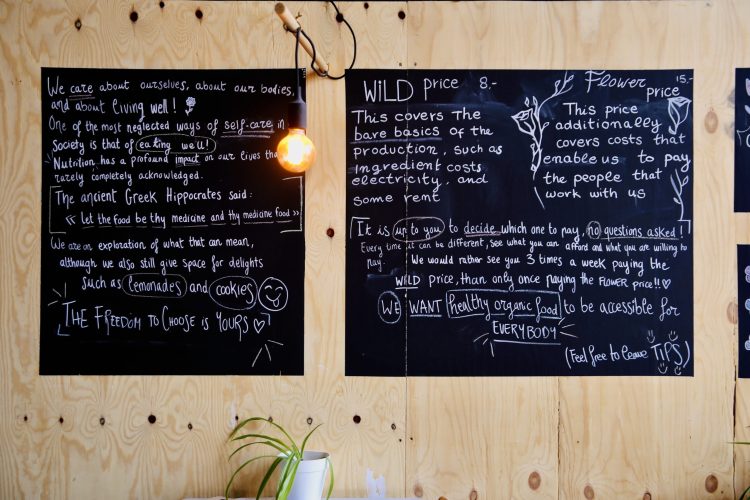 We care about ourselves, about our bodies,
and about living well!
One of the most neglected ways of self-care in
Society is that of eating well!
Nutrition has a profound impact on our lives that
rarely completely acknowledged.
The ancient Greek Hippocrates said:
<< let the food be thy medicine and thy medicine food >>
We are on exploration of what that can mean,
although we also still give space for delights
such as lemonades and cookies
THE FREEDOM TO CHOOSE IS YOURS
WILD Price 8.-
This covers the
bare basics of the
production, such as
ingredient costs
electricity, and
some rent
Flower 15.-
price
This price
additionally
covers costs that
enable us to pay
the people that
work with us
It is up to you to decide which one to pay, no questions asked!
Every time it can be different, see what you can afford and what you are willing to
pay. We would rather see you 3 times a week paying the
WILD price, than only once paying the FLOWER price!!
WE WANT healthy organic food to be accessible for
EVERYBODY
(Feel free to leave TIPS)